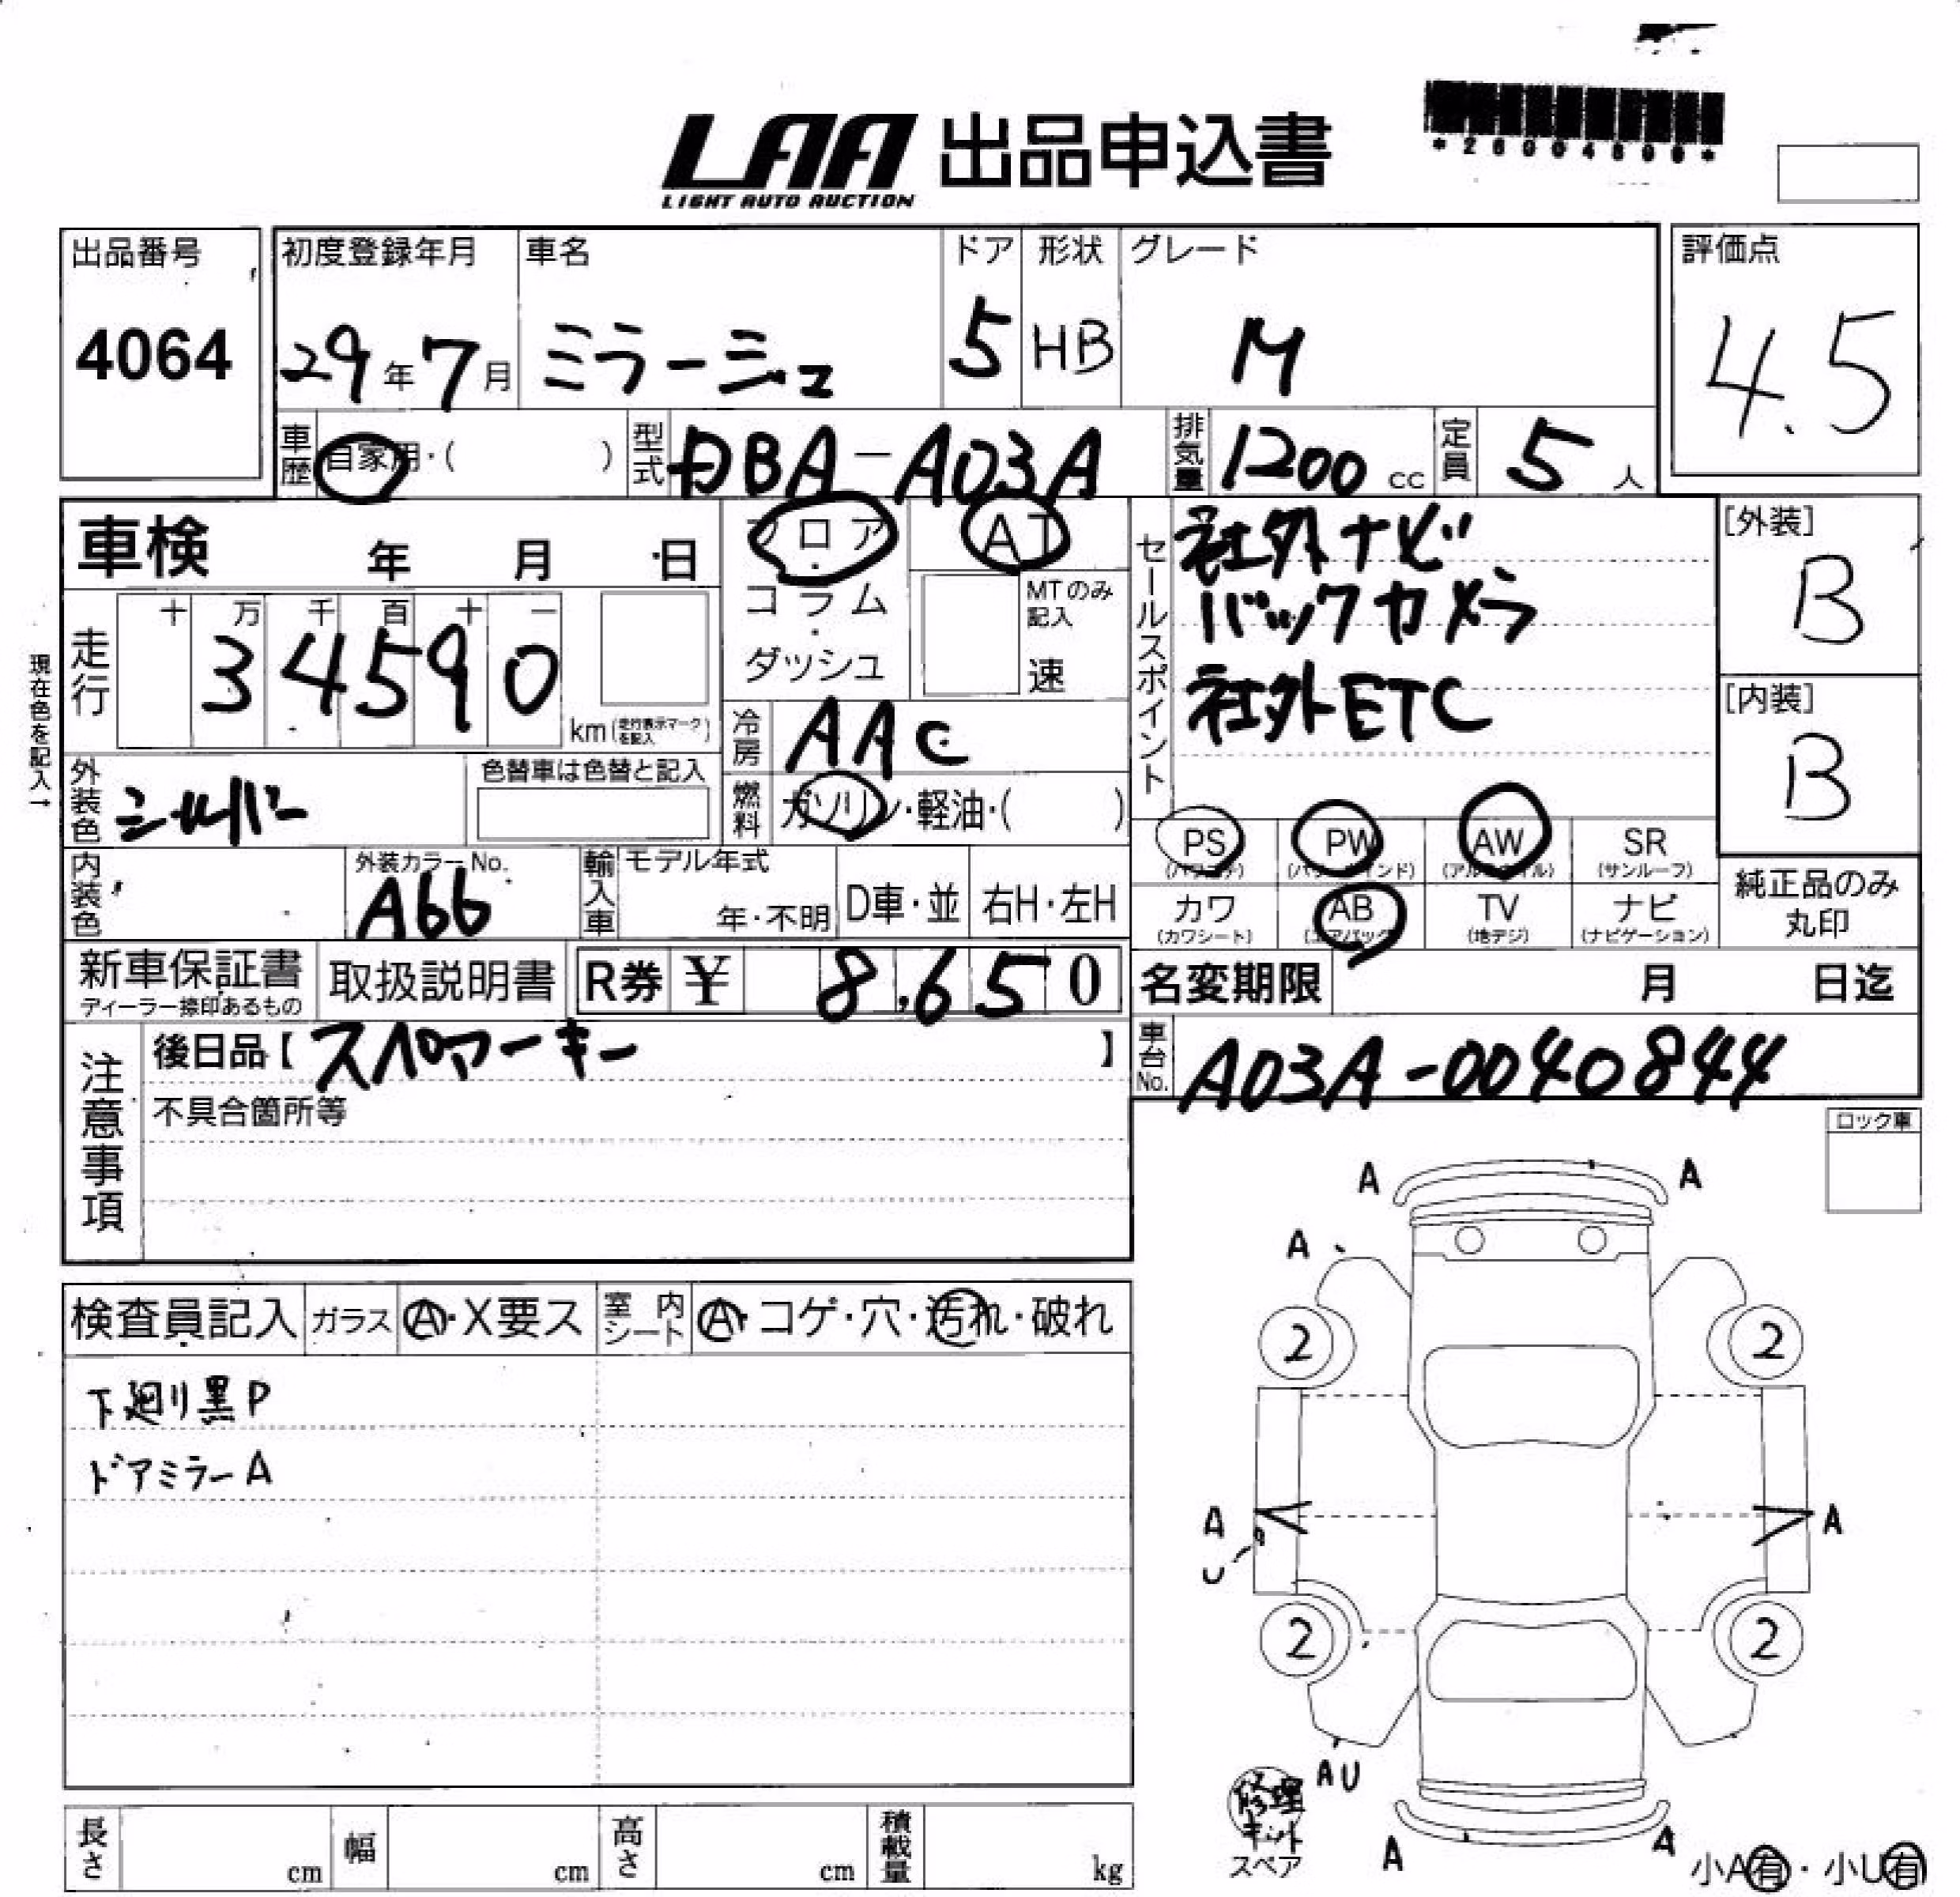 LAA 出品申込書
LIGHT AUTO AUCTION
出品番号 初度登録年月 車名 ドア 形状 グレード 評価点
4064 29年7月 ミラージュ 5 HB M 4.5
車歴 自家用・( ) 型式 DBA-A03A 排気量 1200cc 定員 5人
車検 年 月 日
フロア・コラム・ダッシュ
AT
MTのみ記入
速
セールスポイント
社外ナビ
バックカメラ
社外ETC
[外装]
B
[内装]
B
現在色を記入→
走行 十万千百十一
34590
km(走行表示マークを記入)
冷房 AAC
外装色 シルバー 色替車は色替と記入
燃料 ガソリン・軽油・( )
PS (パワステ) PW (パワーウインド) AW (アルミホイル) SR (サンルーフ)
カワ (カワシート) AB (エアバック) TV (地デジ) ナビ (ナビゲーション)
純正品のみ丸印
内装色 外装カラーNo. A66 輸入車 モデル年式 年・不明 D車・並 右H・左H
新車保証書 ディーラー捺印あるもの 取扱説明書 R券 ¥ 8,650 名変期限 月 日迄
注意事項
後日品【スペアーキー】
不具合箇所等
車台No. A03A-0040844
ロック車
検査員記入 ガラス A・X要ス 室内シート A・コゲ・穴・汚れ・破れ
下廻り黒P
ドアミラーA
A A
A
2 2
A A
U
2 2
AU
修理キット
スペア
A A
小A有・小U有
長さ cm 幅 cm 高さ cm 積載量 kg